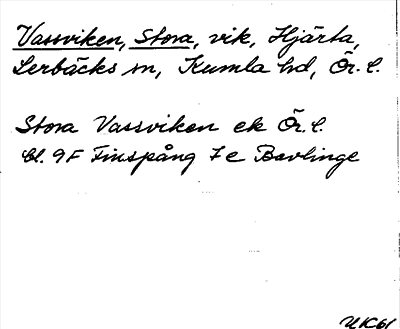 Vassviken, Stora, vik, Hjärta,
Lerbäcks sn, Kumla hd, Ör. l.
Stora Vassviken ek Ör. l.
bl. 9F Finspång 7e Bavlinge